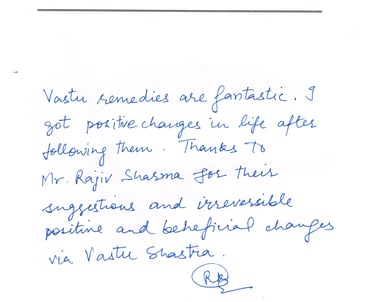 Vastu remedies are fantastic. I
got positive changes in life after
following them. Thanks to
Mr. Rajiv Sharma for their
suggestions and irreversible
positive and beneficial changes
via Vastu Shastra.